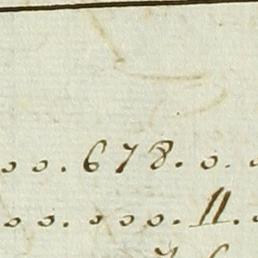 oo.678.o.
oo.ooo.11.